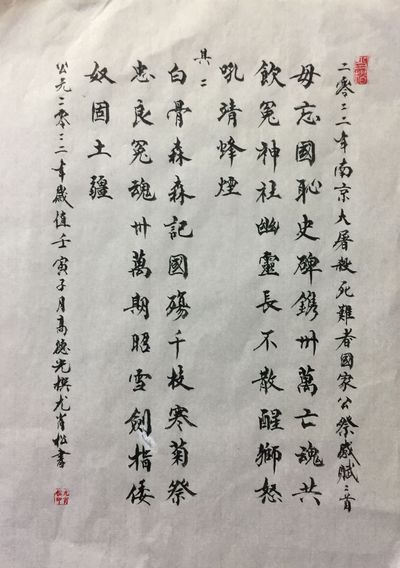 二零二二年南京大屠殺死難者國家公祭感賦二首
毋忘國恥史碑鐫卅萬亡魂共
飲冤神社幽靈長不散醒獅怒
吼靖烽煙
其二
白骨森森記國殤千枝寒菊祭
忠良冤魂卅萬期昭雪劍指倭
奴固土疆
公元二零二二年歲值壬寅子月高德光撰尤育松書